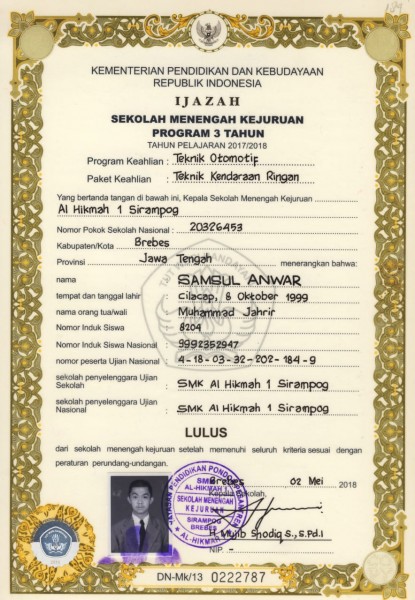 KEMENTERIAN PENDIDIKAN DAN KEBUDAYAAN
REPUBLIK INDONESIA
IJAZAH
SEKOLAH MENENGAH KEJURUAN
PROGRAM 3 TAHUN
TAHUN PELAJARAN 2017/2018
Program Keahlian : Teknik Otomotif
Paket Keahlian : Teknik Kendaraan Ringan
Yang bertanda tangan di bawah ini, Kepala Sekolah Menengah Kejuruan
Al Hikmah 1 Sirampog
Nomor Pokok Sekolah Nasional : 20326453
Kabupaten/Kota : Brebes
Provinsi : Jawa Tengah menerangkan bahwa:
nama : SAMSUL ANWAR
tempat dan tanggal lahir : Cilacap, 8 Oktober 1999
nama orang tua/wali : Muhammad Jahrir
Nomor Induk Siswa : 8204
Nomor Induk Siswa Nasional : 9992352947
nomor peserta Ujian Nasional : 4-18-03-32-202-184-9
sekolah penyelenggara Ujian Sekolah : SMK Al Hikmah 1 Sirampog
sekolah penyelenggara Ujian Nasional : SMK Al Hikmah 1 Sirampog
LULUS
dari sekolah menengah kejuruan setelah memenuhi seluruh kriteria sesuai dengan
peraturan perundang-undangan.
Brebes, 02 Mei 2018
Kepala Sekolah,
YAYASAN PENDIDIKAN PONDOK PESANTREN
SMK
AL-HIKMAH 1
SEKOLAH MENENGAH
KEJURUAN
SIRAMPOG
BREBES
AL-HIKMAH
H. Mujib Shodiq S., S.Pd.I
NIP. -
DN-Mk/13 0222787